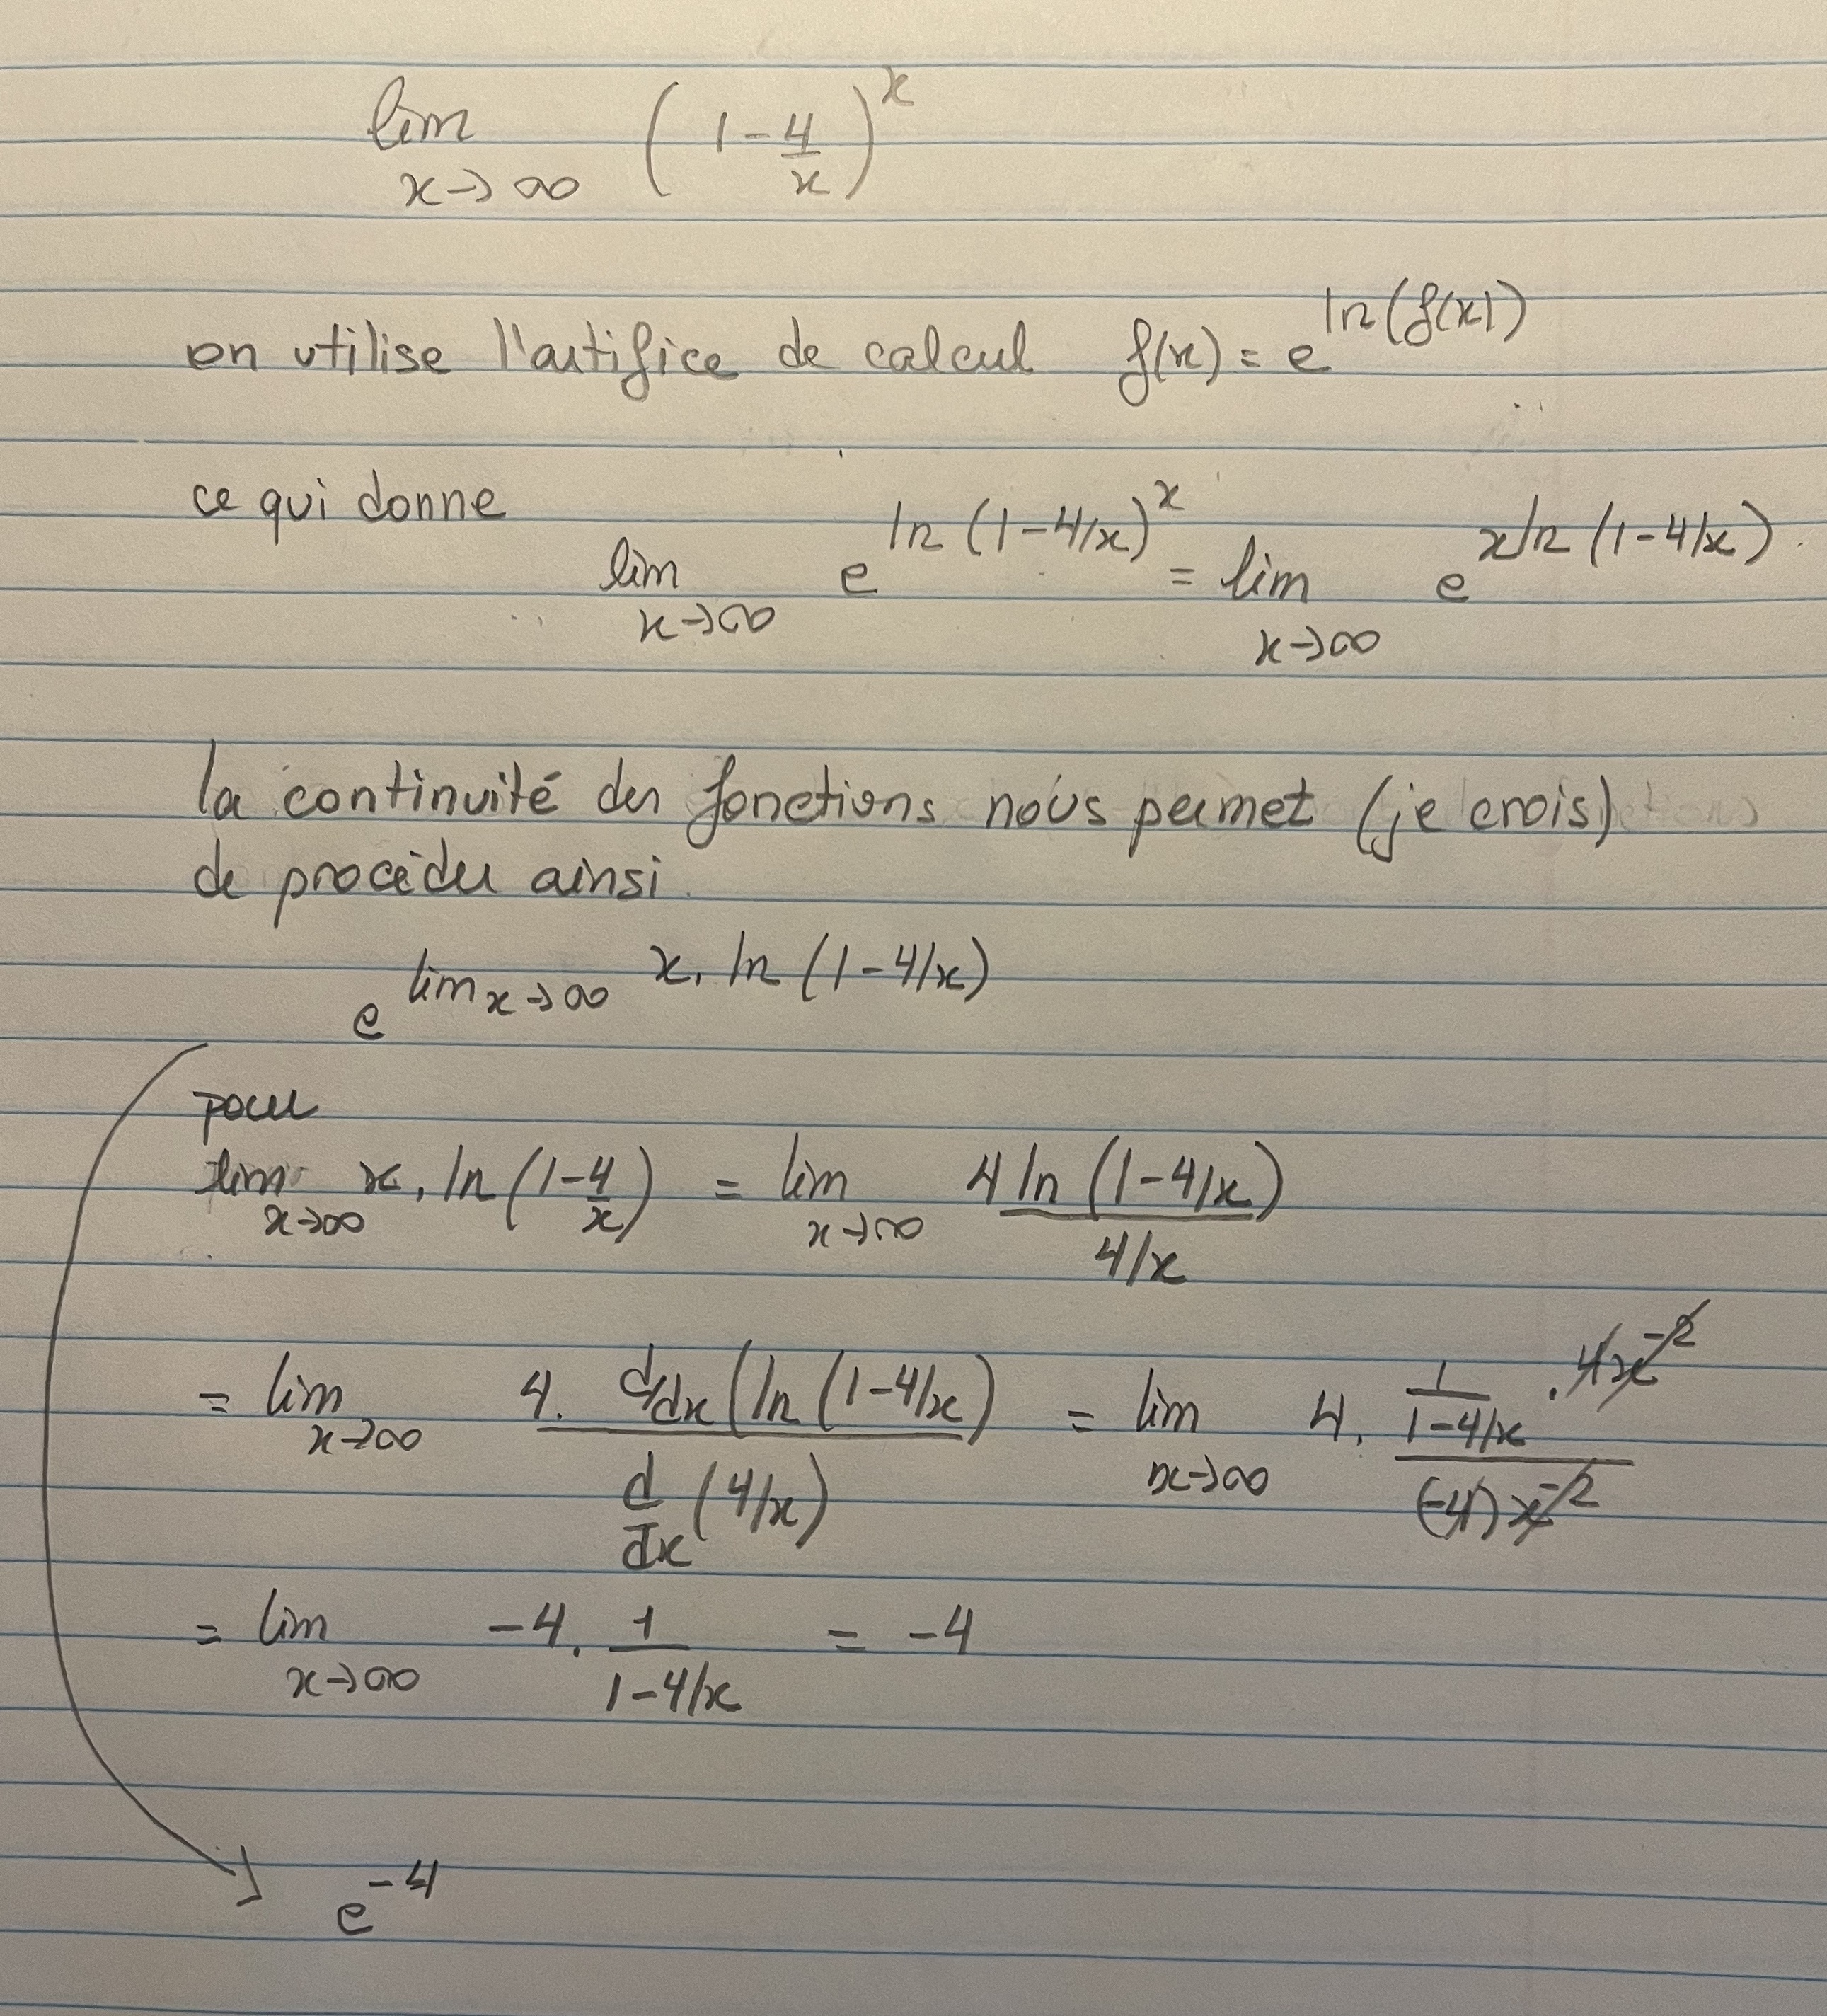 lim x→∞ (1 - 4/x)^x
on utilise l'artifice de calcul f(x) = e^ln(f(x))
ce qui donne
lim x→∞ e^ln(1-4/x)^x = lim x→∞ e^xln(1-4/x)
la continuité des fonctions nous permet (je crois)
de procéder ainsi
e^lim x→∞ x. ln(1-4/x)
pour
lim x→∞ x. ln(1-4/x) = lim x→∞ 4 ln(1-4/x) / 4/x
= lim x→∞ 4. d/dx(ln(1-4/x) / d/dx(4/x) = lim x→∞ 4. 1/(1-4/x) . 4x^-2 / (-4)x^-2
= lim x→∞ -4. 1/(1-4/x) = -4
e^-4